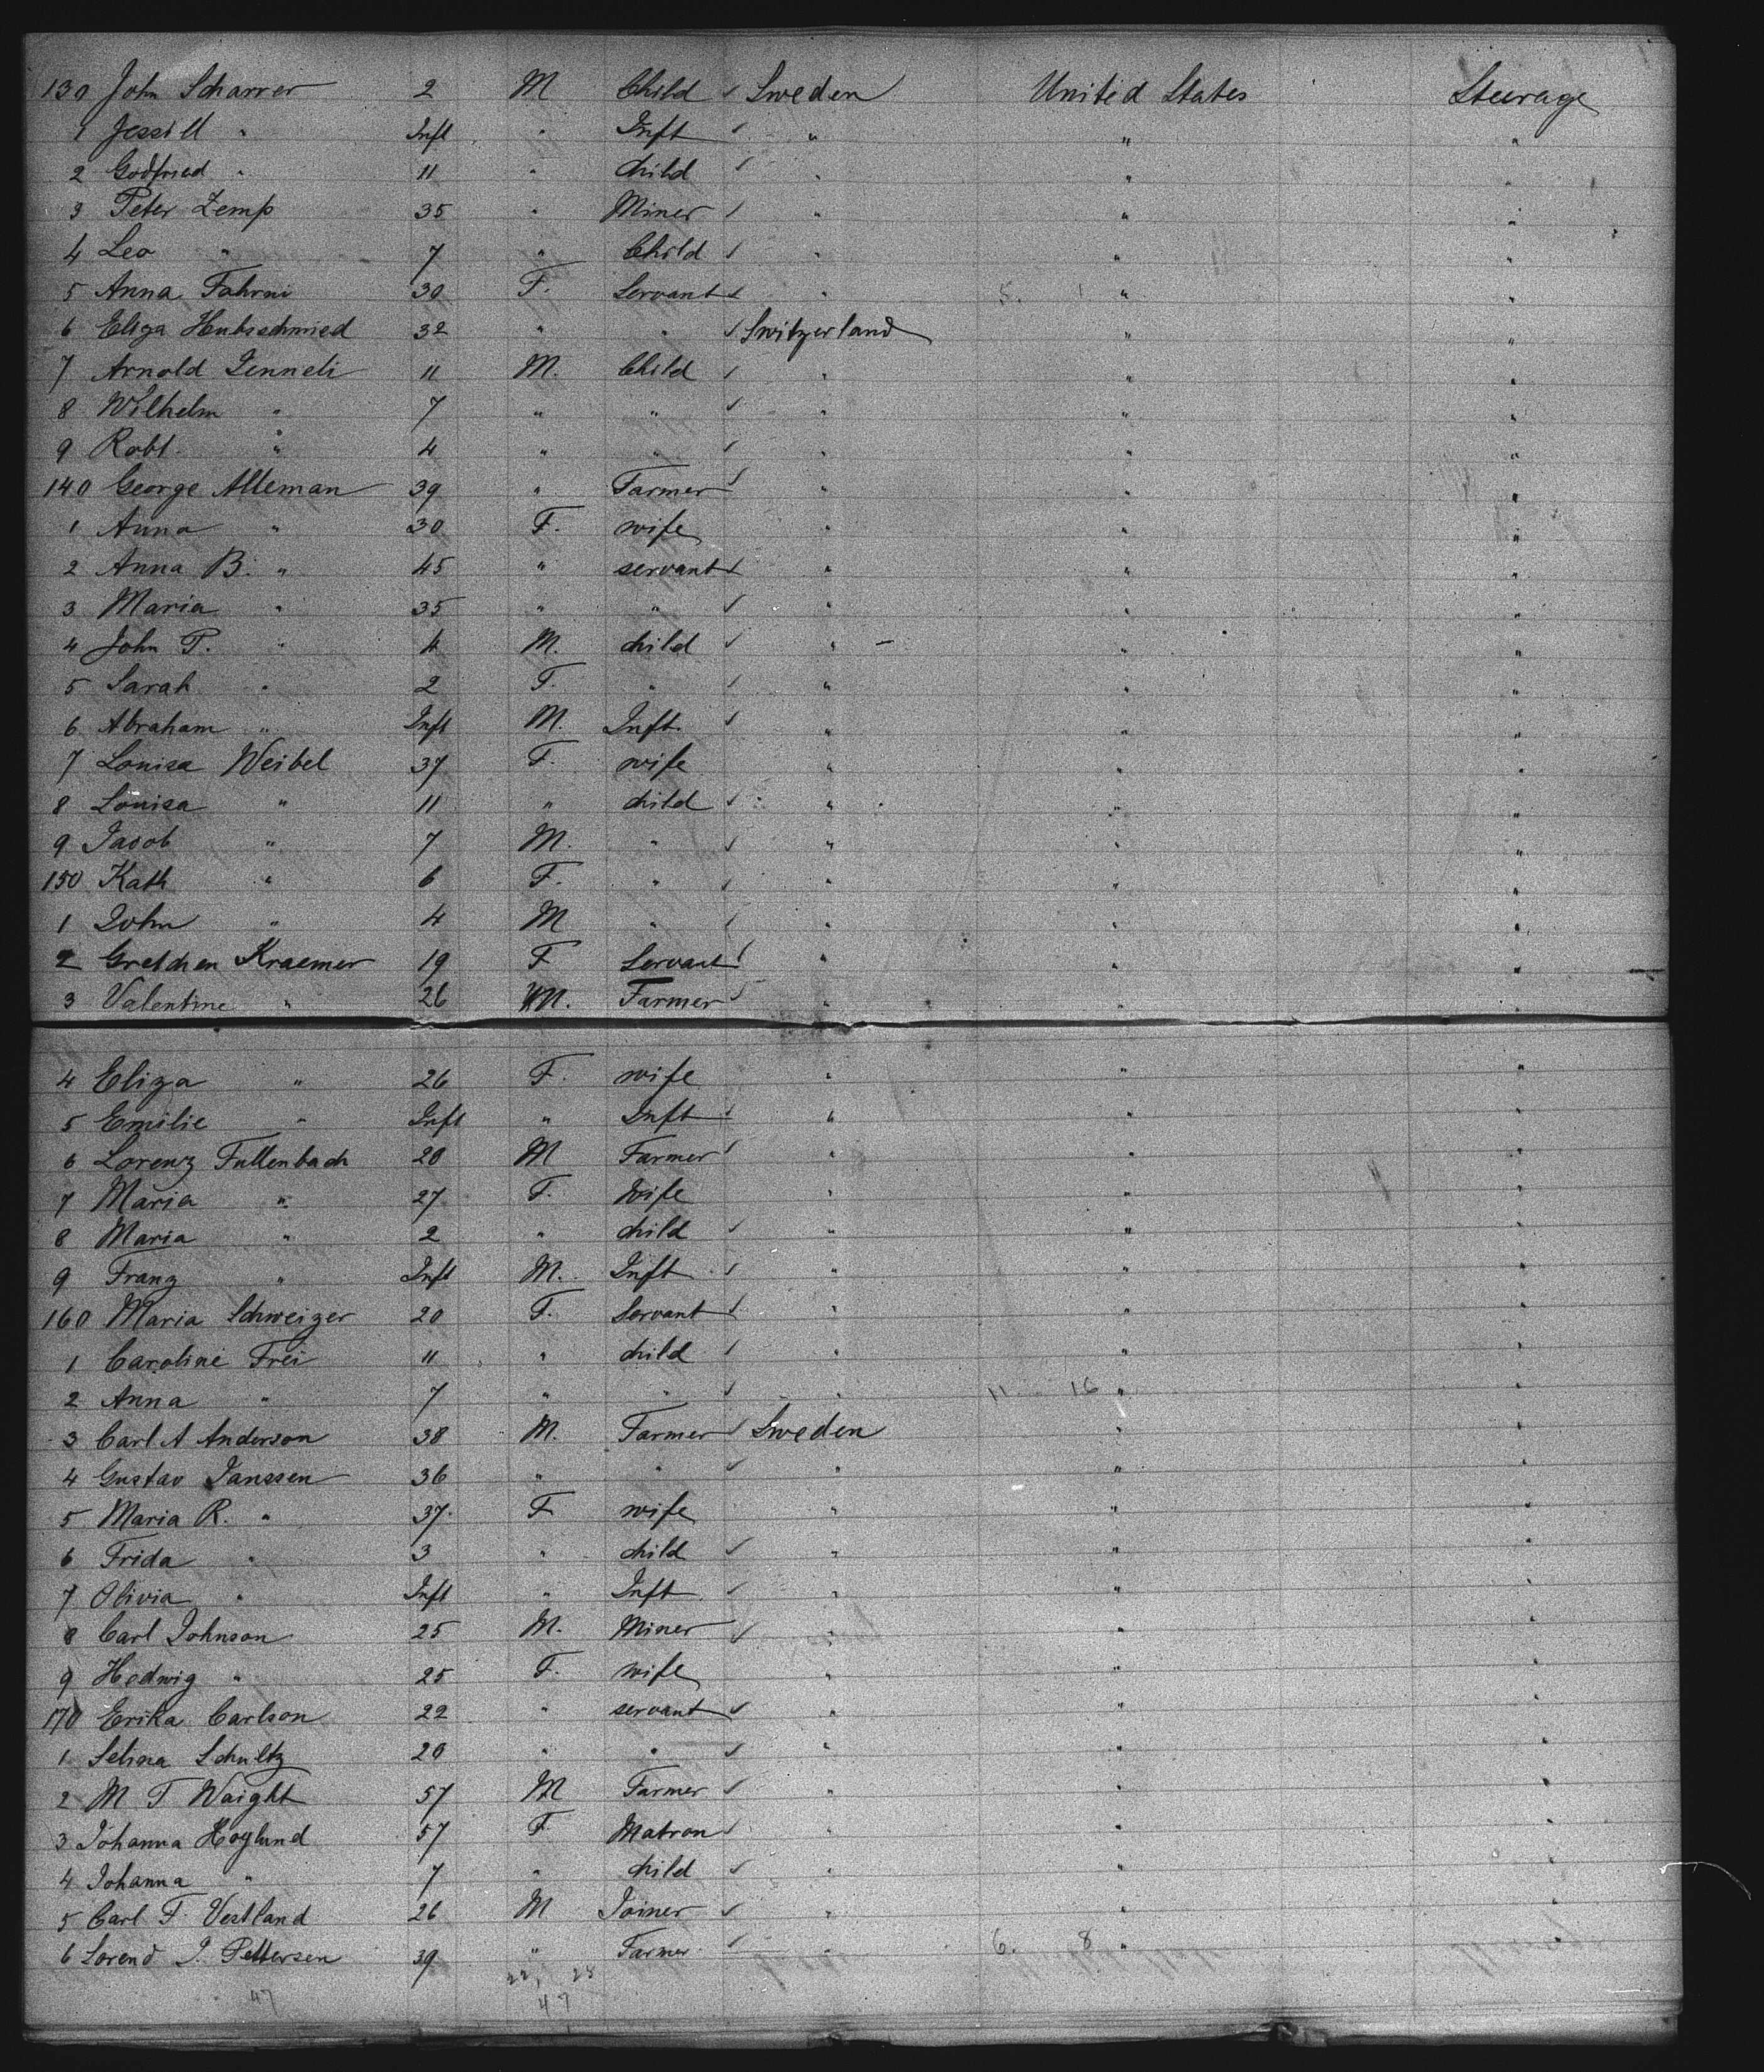 130 John Scharrer 2 M Child ✓ Sweden United States Steerage
1 " Inft " Inft ✓ " " "
2 Godfried " 11 " child ✓ " " "
3 Peter Zemp 35 " Miner ✓ " " "
4 Leo " 7 " Child ✓ " " "
5 Anna Fahrni 30 F. Servant ✓ " 5. 1 " "
6 Eliza Hubschmied 32 " " ✓ Switzerland " "
7 Arnold Zenneli 11 M. Child ✓ " " "
8 Wilhelm " 7 " " ✓ " " "
9 Robt. " 4 " " ✓ " " "
140 George Alleman 39 " Farmer ✓ " " "
1 Anna " 30 F. wife " " "
2 Anna B. " 45 " servant ✓ " " "
3 Maria " 35 " " ✓ " " "
4 John P. " 4 M. child ✓ " " "
5 Sarah " 2 F. " ✓ " " "
6 Abraham " Inft M. Inft. ✓ " " "
7 Louisa Weibel 37 F. wife " " "
8 Louisa " 11 " child ✓ " " "
9 Jacob " 7 M. " ✓ " " "
150 Kath " 6 F. " ✓ " " "
1 John " 4 M " ✓ " " "
2 Gretchen Kraemer 19 F Servant ✓ " " "
3 Valentine " 26 M. Farmer ✓ " " "
4 Eliza " 26 F. wife " " "
5 Emilie " Inft " Inft ✓ " " "
6 Lorenz Fullenbach 20 M Farmer ✓ " " "
7 Maria " 27 F. Wife " " "
8 Maria " 2 " child ✓ " " "
9 Franz " Inft M. Inft ✓ " " "
160 Maria Schweizer 20 F. Servant ✓ " " "
1 Caroline Frei 11 " child ✓ " " "
2 Anna " 7 " " ✓ " 11 16 " "
3 Carl A Anderson 38 M. Farmer ✓ Sweden " "
4 Gustav Janssen 36 " " ✓ " " "
5 Maria R. " 37 F wife " " "
6 Frida " 3 " child ✓ " " "
7 Olivia " Inft " Inft ✓ " " "
8 Carl Johnson 25 M. Miner ✓ " " "
9 Hedwig " 25 F. wife " " "
170 Erika Carlson 22 " servant ✓ " " "
1 Selma Schultz 20 " " ✓ " " "
2 M T Waight 57 M Farmer ✓ " " "
3 Johanna Hoglund 57 F Matron ✓ " " "
4 Johanna " 7 " child ✓ " " "
5 Carl F. Vestland 26 M Joiner ✓ " " "
6 Lorend J. Pettersen 39 " Farmer ✓ " 6. 8 " "
22, 25
47 47